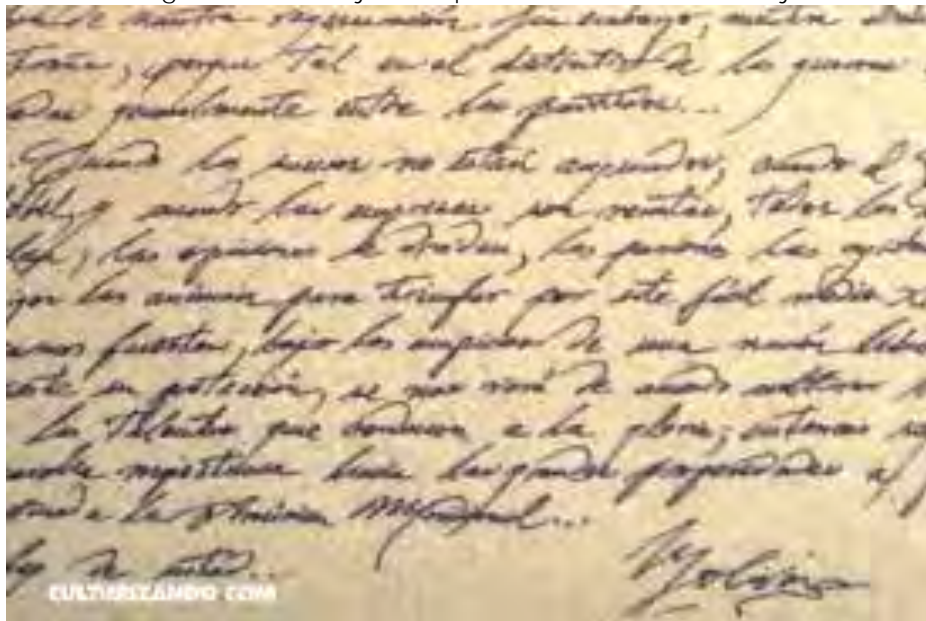 de nuestra regeneración. Sin embargo, nuestra
porque tal es el distintivo de las guerras
generalmente entre los partidos...
Cuando los sucesos no están asegurados, cuando el
y cuando las empresas son remotas, todos los
las opiniones se dividen, las pasiones las agitan
las animan para triunfar por este fácil medio
fuertes, bajo los auspicios de una nación
su protección, se nos verá de acuerdo cultivar
los talentos que conducen a la gloria; entonces
majestuosa hacia las grandes prosperidades a
a la América Meridional...
de usted...
Bolívar
CULTURIZANDO.COM